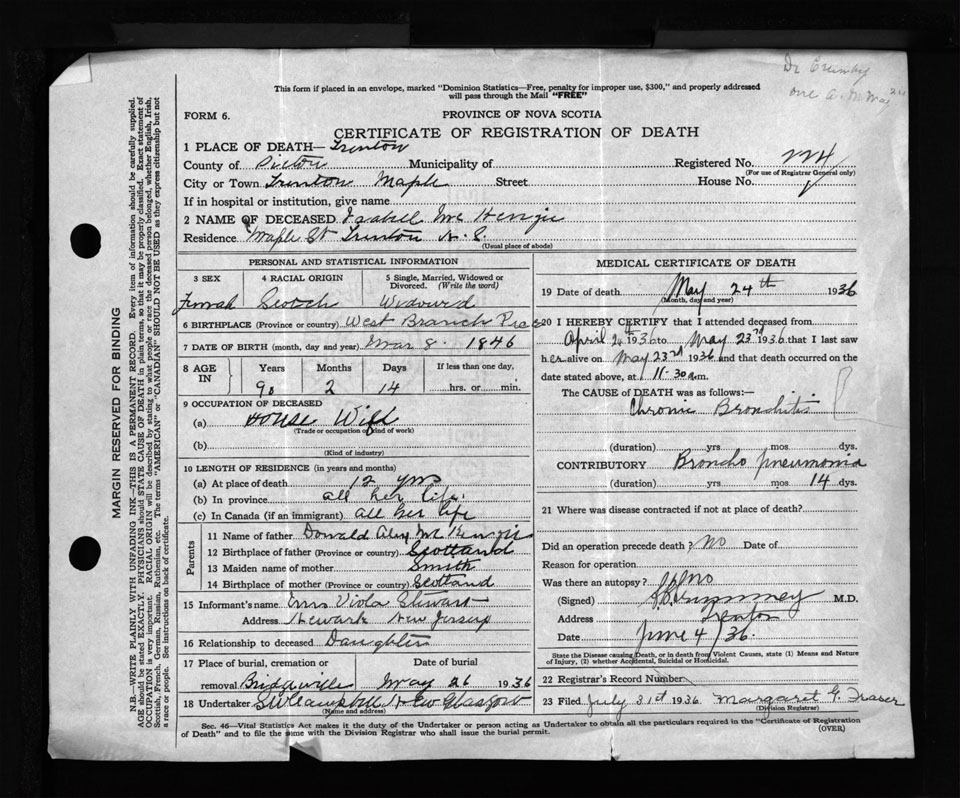 Dr
one
This form if placed in an envelope, marked "Dominion Statistics—Free, penalty for improper use, $300," and properly addressed
will pass through the Mail "FREE"
FORM 6.
PROVINCE OF NOVA SCOTIA
CERTIFICATE OF REGISTRATION OF DEATH
1 PLACE OF DEATH— Trenton
County of Pictou Municipality of Registered No.
(For use of Registrar General only)
City or Town Trenton Maple Street House No.
If in hospital or institution, give name
2 NAME OF DECEASED Isabel Mc Kenzie
Residence Maple St Trenton N. S.
(Usual place of abode)
PERSONAL AND STATISTICAL INFORMATION
3 SEX 4 RACIAL ORIGIN 5 Single, Married, Widowed or
Divorced. (Write the word)
Female Scotch Widowed
6 BIRTHPLACE (Province or country) West Branch
7 DATE OF BIRTH (month, day and year) Mar 8. 1846
8 AGE IN
Years Months Days If less than one day,
90 2 14 hrs. or min.
9 OCCUPATION OF DECEASED
(a) House Wife
(Trade or occupation or kind of work)
(b)
(Kind of industry)
10 LENGTH OF RESIDENCE (in years and months)
(a) At place of death 12 yrs
(b) In province all her life.
(c) In Canada (if an immigrant) all her life
Parents
11 Name of father Donald Alex Mc Kenzie
12 Birthplace of father (Province or country) Scotland
13 Maiden name of mother Smith
14 Birthplace of mother (Province or country) Scotland
15 Informant's name Mrs Viola Stewart
Address Newark New Jersey
16 Relationship to deceased Daughter
17 Place of burial, cremation or Date of burial
removal Bridgeville May 26 1936
18 Undertaker S W Campbell New Glasgow
(Name and address)
MEDICAL CERTIFICATE OF DEATH
19 Date of death May 24th 1936
(Month, day and year)
20 I HEREBY CERTIFY that I attended deceased from
April 24th 1936 to May 23rd 1936 that I last saw
her alive on May 23rd 1936 and that death occurred on the
date stated above, at 11.30 a.m.
The CAUSE OF DEATH was as follows:—
Chronic Bronchitis
(duration) yrs mos dys.
CONTRIBUTORY Broncho pneumonia
(duration) yrs mos 14 dys.
21 Where was disease contracted if not at place of death?
Did an operation precede death? No Date of
Reason for operation
Was there an autopsy? No
(Signed) M.D.
Address Trenton
Date June 4/36.
State the Disease causing Death, or in death from Violent Causes, state (1) Means and Nature
of Injury, (2) whether Accidental, Suicidal or Homicidal.
22 Registrar's Record Number
23 Filed July 31st 1936 Margaret G. Fraser
(Division Registrar)
Sec. 46—Vital Statistics Act makes it the duty of the Undertaker or person acting as Undertaker to obtain all the particulars required in the "Certificate of Registration
of Death" and to file the same with the Division Registrar who shall issue the burial permit. (OVER)
MARGIN RESERVED FOR BINDING
N.B.—WRITE PLAINLY WITH UNFADING INK—THIS IS A PERMANENT RECORD. Every item of information should be carefully supplied.
AGE should be stated EXACTLY. PHYSICIANS should STATE CAUSE OF DEATH in plain terms, so that it may be properly classified. Exact statement of
OCCUPATION is very important. RACIAL ORIGIN will be described by stating to what people or race the deceased person belonged, whether English, Irish,
Scottish, French, German, Russian, Ruthenian, etc. The terms "AMERICAN" or "CANADIAN" SHOULD NOT BE USED as they express citizenship but not
a race or people. See instructions on back of certificate.